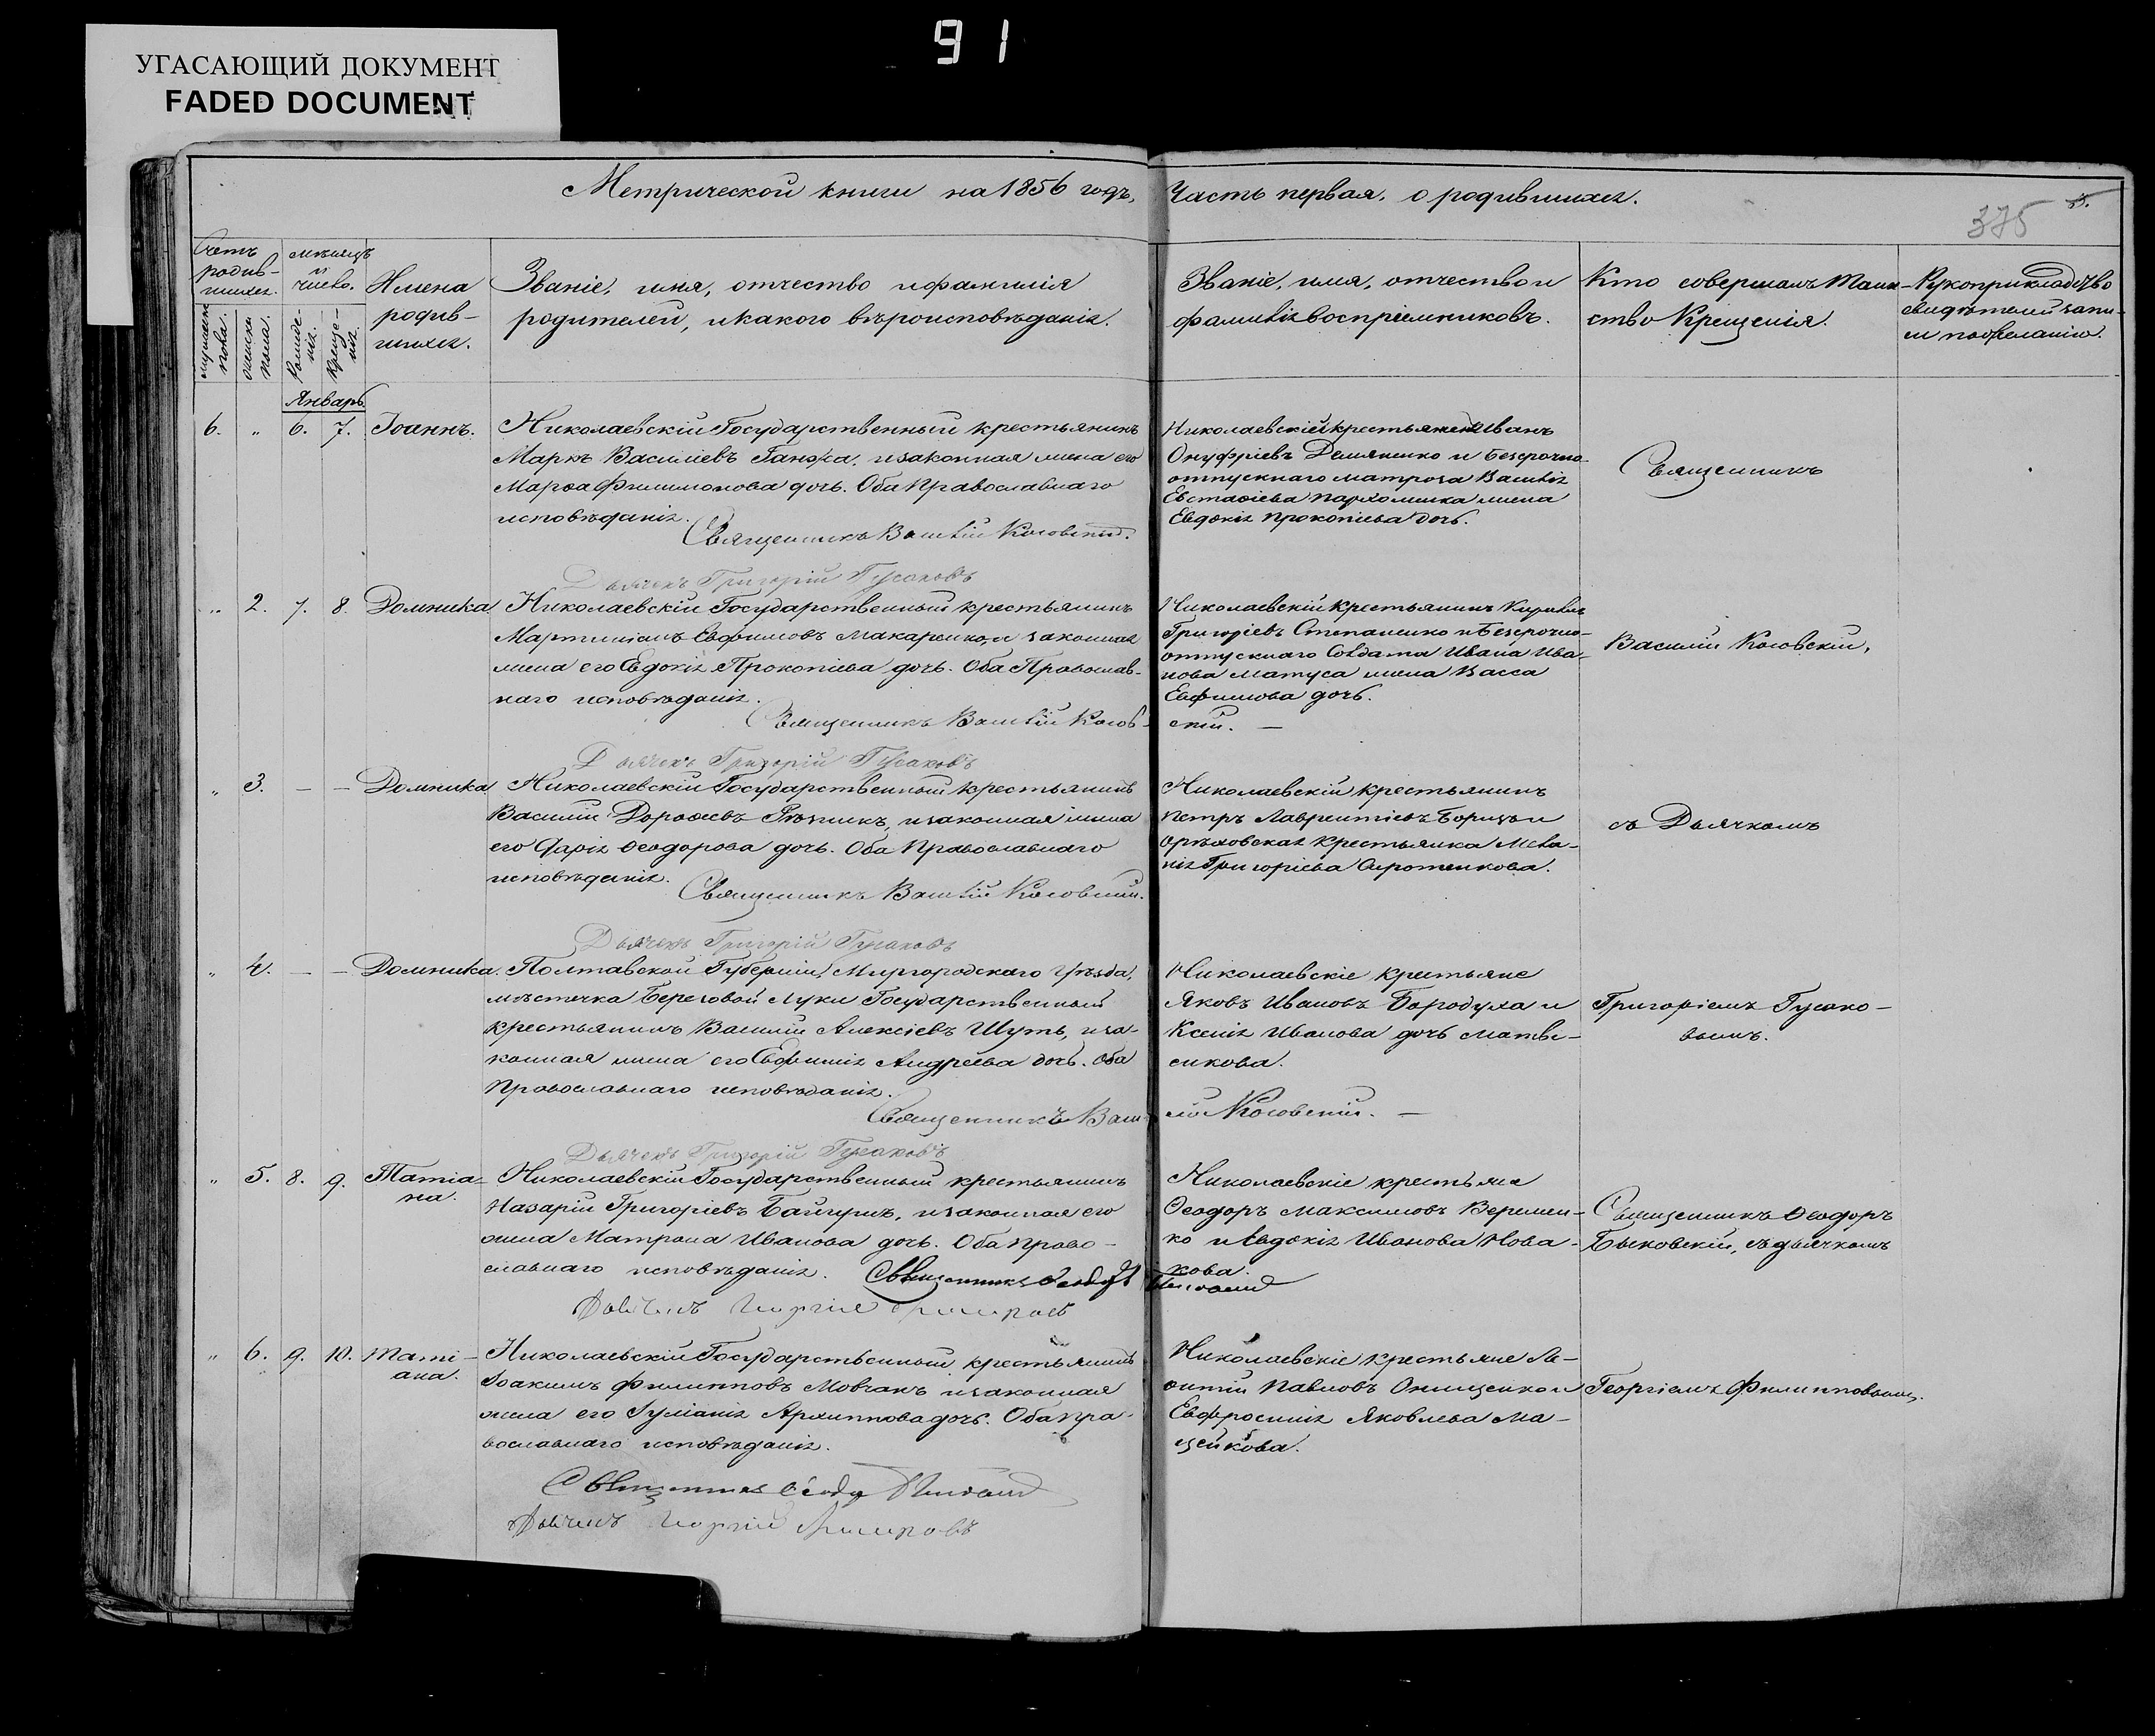 91
УГАСАЮЩИЙ ДОКУМЕНТ
FADED DOCUMENT
Метрической книги на 1856 годъ, Часть первая, о родившихся.
375
Счетъ родив-шихся.
мѣсяцъ и число.
Имена родив-шихся.
Званіе, имя, отчество и фамилія
родителей, и какого вѣроисповѣданія.
Званіе, имя, отчество и
фамилія воспріемниковъ.
Кто совершалъ Таин-
ство Крещенія.
Рукоприкладство
свидѣтелей запи-
си по желанію.
мужеска пола.
женска пола.
Рожде-нія.
Креще-нія.
Январь
6. „ 6. 7. Іоаннъ.
Николаевскій Государственный крестьянинъ
Маркъ Василіевъ Ганжа, и законная жена его
Марѳа Филимонова дочь. Оба Православнаго
исповѣданія.
Священникъ Василій Косовскій.
Дьячекъ Григорій Гусаковъ
Николаевскій крестьянинъ Иванъ
Онуфріевъ Демяненко и безсрочно-
отпускнаго матроза Василія
Евстафіева Пархоменка жена
Евдокія Прокопіева дочь.
Священникъ
„ 2. 7. 8. Домника
Николаевскій Государственный крестьянинъ
Мартиніанъ Евфимовъ Макаренко, и законная
жена его Евдокія Прокопіева дочь. Оба Православ-
наго исповѣданія.
Священникъ Василій Косов-
скій. —
Дьячекъ Григорій Гусаковъ
Николаевскій крестьянинъ Кирилъ
Григоріевъ Степаненко и Безсрочно-
отпускнаго Солдата Ивана Ива-
нова Матуса жена Васса
Евфимова дочь.
Василій Косовскій,
„ 3. — — Домника
Николаевскій Государственный крестьянинъ
Василій Дорофеевъ Рѣзникъ, и законная жена
его Дарія Ѳеодорова дочь. Оба Православнаго
исповѣданія.
Священникъ Василій Косовскій.
Дьячекъ Григорій Гусаковъ
Николаевскій крестьянинъ
Петръ Лаврентіевъ и
Орѣховская крестьянка Мела-
нія Григоріева Сиротенкова.
съ Дьячкомъ
„ 4. — — Домника.
Полтавской Губерніи, Миргородскаго Уѣзда,
мѣстечка Береговой Луки Государственный
крестьянинъ Василій Алексіевъ Шуть, и за-
конная жена его Евфимія Андреева дочь. Оба
Православнаго исповѣданія.
Священникъ Васи-
лій Косовскій. —
Дьячекъ Григорій Гусаковъ
Николаевскіе крестьяне
Яковъ Ивановъ Бородуха и
Ксенія Иванова дочь Матве-
енкова.
Григоріемъ Гусако-
вымъ.
„ 5. 8. 9. Татіа-
на.
Николаевскій Государственный крестьянинъ
Назарій Григоріевъ, и законная его
жена Матрона Иванова дочь. Оба право-
славнаго исповѣданія.
Священникъ Ѳеодоръ
Николаевскіе крестьяне
Ѳеодоръ Максимовъ Веремен-
ко и Евдокія Иванова Нова-
кова.
Священникъ Ѳеодоръ
Быковскій, съ дьячкомъ
„ 6. 9. 10. Тати-
ана.
Николаевскій Государственный крестьянинъ
Іоакимъ Филипповъ Мовчанъ и законная
жена его Іуліанія Архиппова дочь. Оба пра-
вославнаго исповѣданія.
Николаевскіе крестьяне Ле-
онтій Павловъ Онищенко и
Евфросинія Яковлева Ма-
цейкова.
Георгіемъ Филипповымъ.
Священникъ Ѳеодоръ
Дьячекъ Георгій